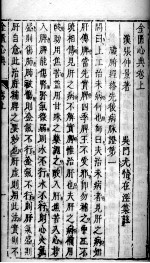 金匱心典卷上
漢張仲景著　吳門尤怡在涇纂註
臟腑經絡先後病脈證第一
問曰上工治未病何也師曰夫治未病者見肝之病知
肝傳脾當先實脾四季脾王不受邪即勿補之中工不曉
相傳見肝之病不解實脾惟治肝也夫肝之病補用酸
助用焦苦益用甘味之藥調之酸入肝焦苦入心甘入
脾脾能傷腎腎氣微弱則水不行水不行則心火氣盛則
傷肺肺被傷則金氣不行金氣不行則肝氣盛則
肝自愈此治肝補脾之要妙也肝虛則用此法實則不